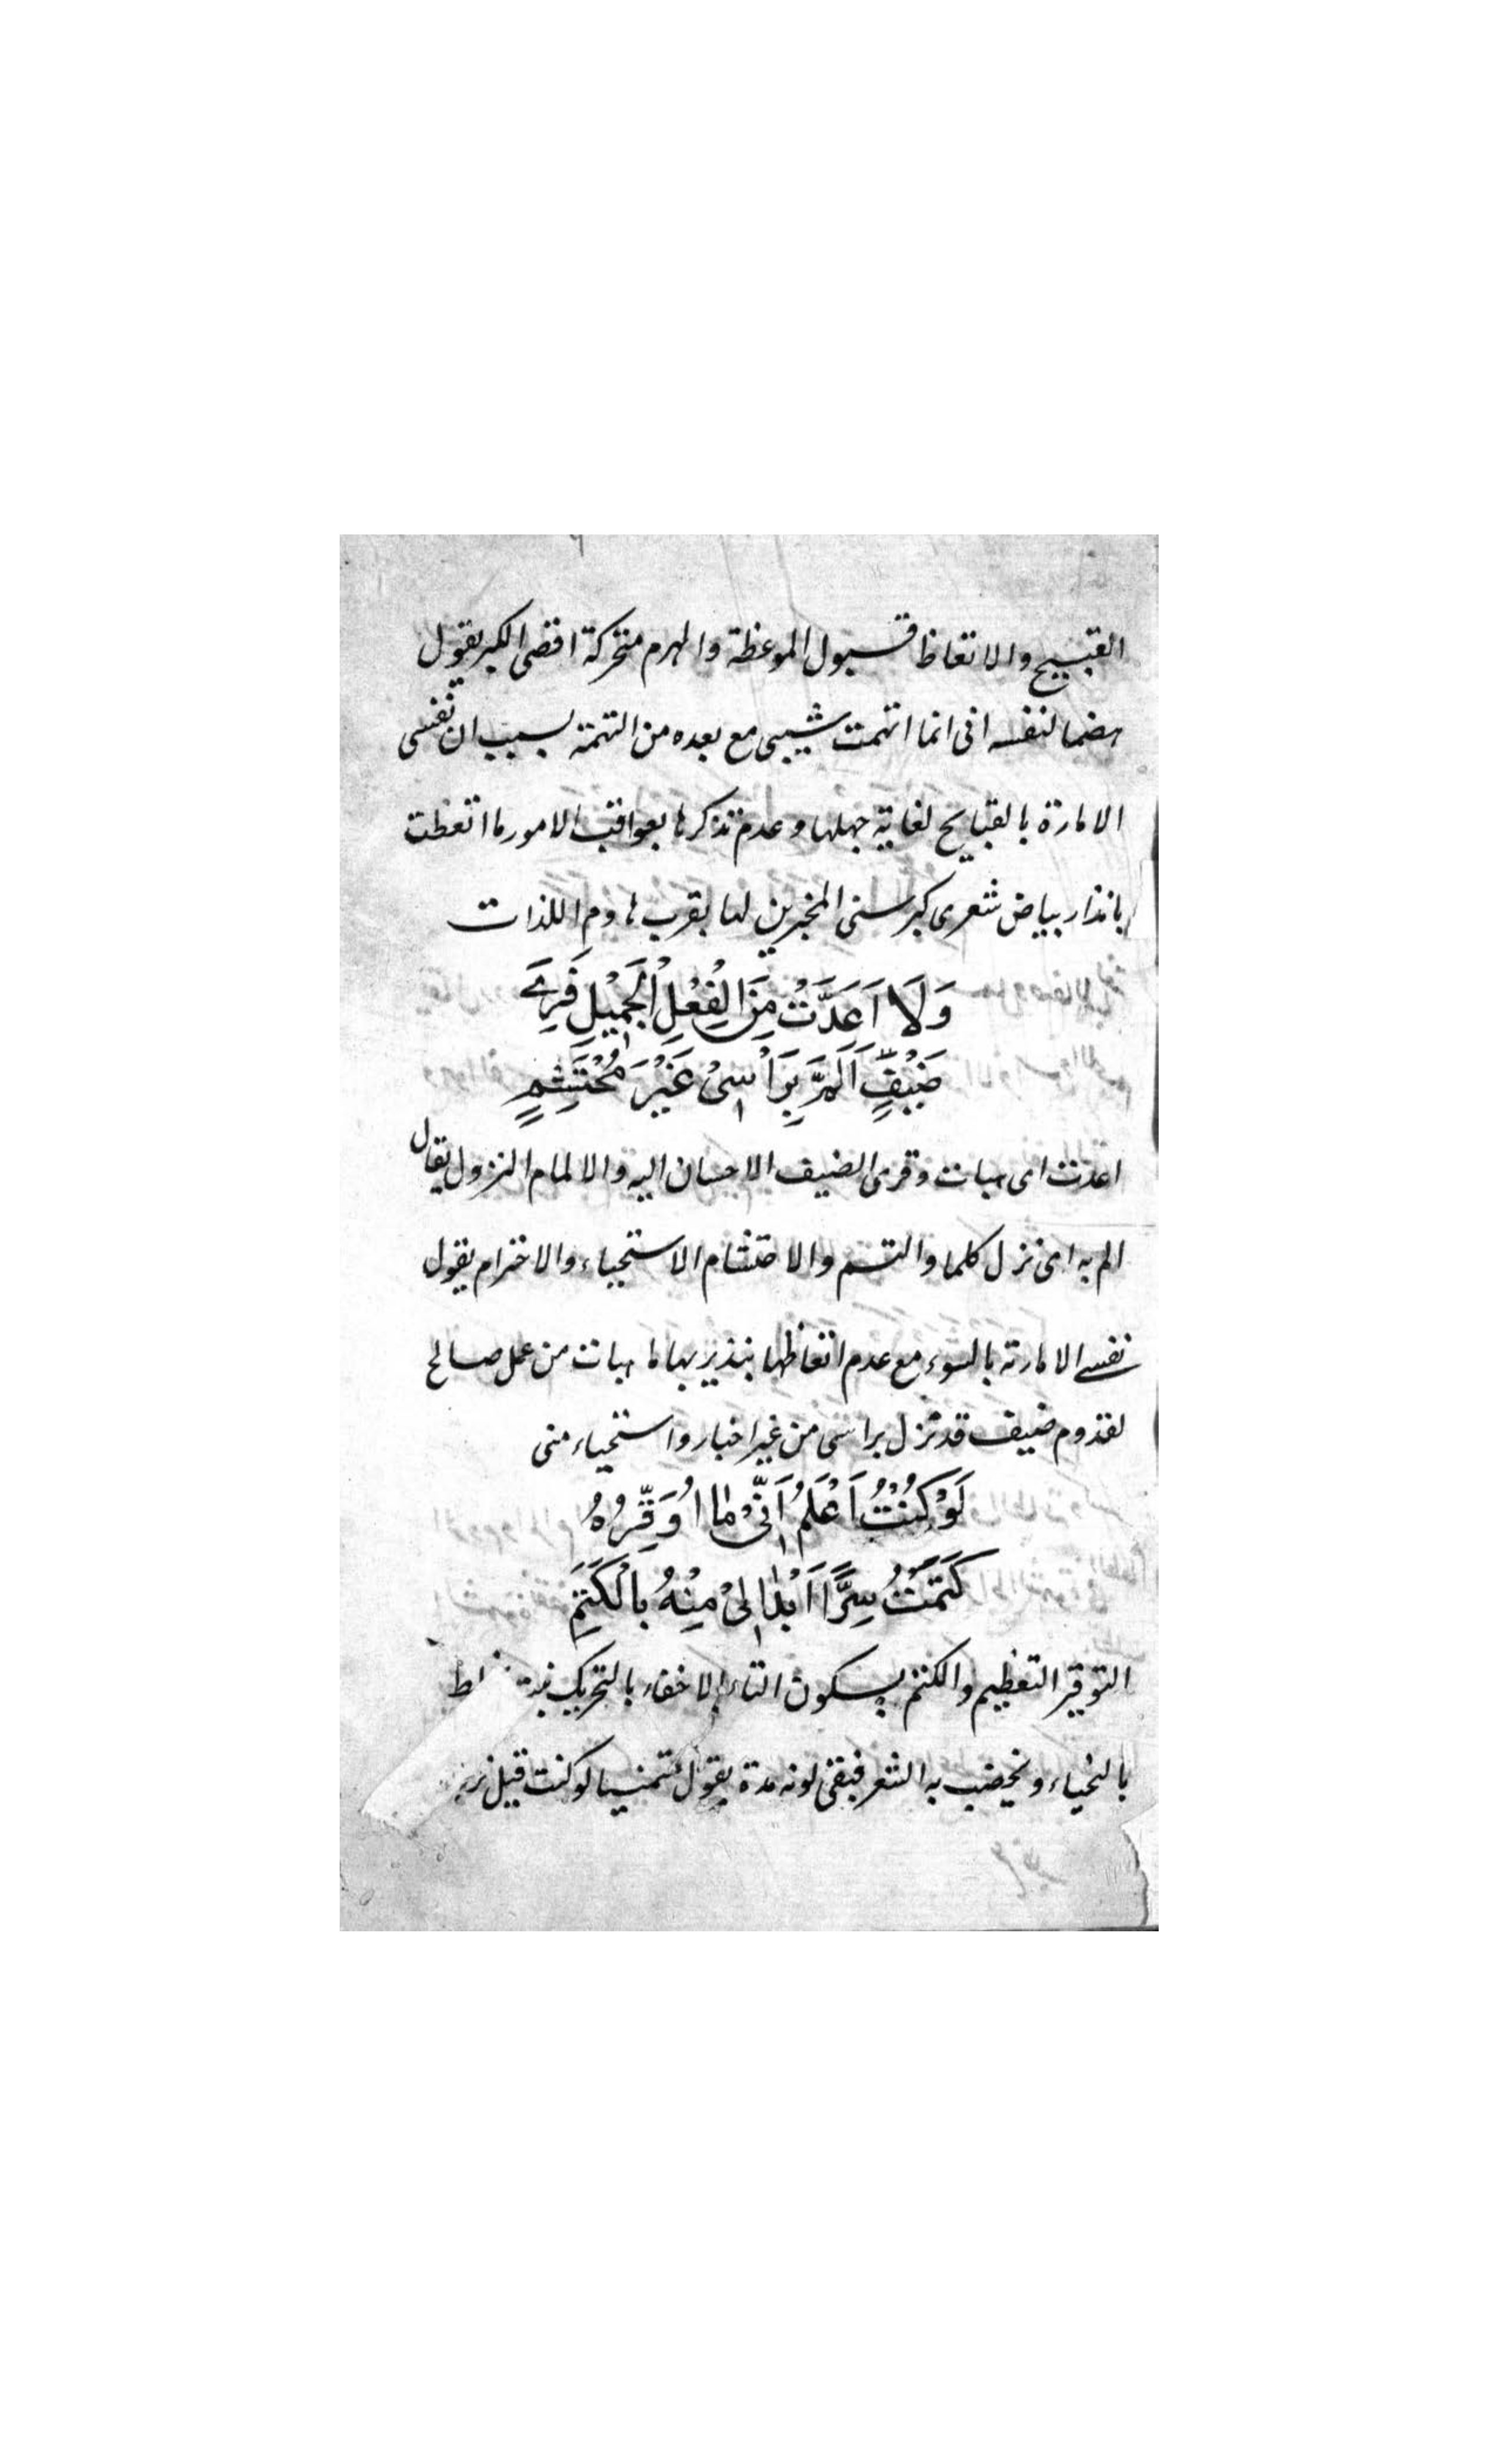 القبيح والاتعاظ قبول الموعظة والهرم متحركة اقصى الكبر يقول
هضما لنفسه انى انما اتهمت شيبى مع بعده من التهمة بسبب ان نفسى
الامارة بالقبايح لغاية جهلها وعدم تذكرها بعواقب الامور ما اتعظت
بانذار بياض شعرى كبر سنى المخبرين لها بقرب هادم اللذات
وَلَا اَعَدَّتْ مِنَ الْفِعْلِ الْجَمِيْلِ قَرِىٰ
ضَيْفٍ اَلَمَّ بِرَاْسِىْ غَيْرَ مُحْتَشِمٍ
اعدت اى هيات وقرى الضيف الاحسان اليه والالمام النزول يقال
الم به اى نزل كلما والتسم والاحتشام الاستحياء والاحترام يقول
نفسى الامارة بالسوء مع عدم اتعاظها بنذيريها ما هيات من عمل صالح
لقدوم ضيف قد نزل براسى من غير اخبار واستحياء منى
لَوْ كُنْتُ اَعْلَمُ اَنِّىْ مَا اُوَقِّرُهُ
كَتَمْتُ سِرًّا اَبْدَا لِىْ مِنْهُ بِالْكَتَمِ
التوقير التعظيم والكتم بسكون التاء الاخفاء بالتحريك نبت
بالحناء ويخضب به الشعر فيبقى لونه مدة يقول متمنيا لو كنت قبل